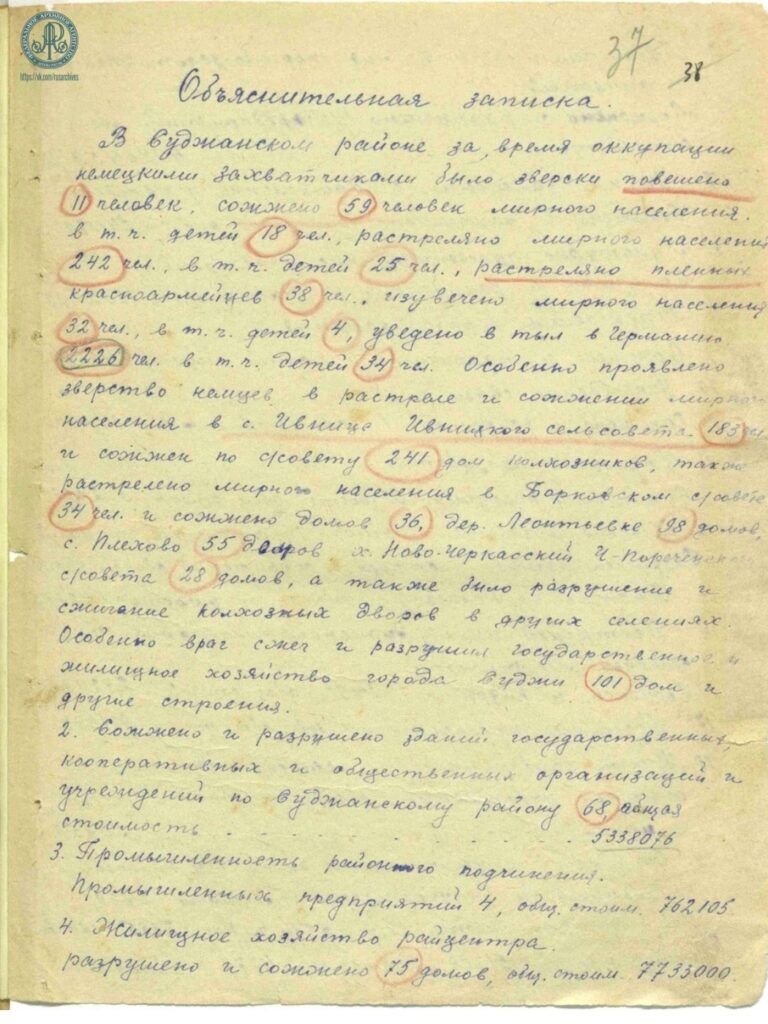 ФЕДЕРАЛЬНОЕ АРХИВНОЕ АГЕНТСТВО
https://vk.com/rusarchives
37
38
Объяснительная записка.
В Суджанском районе за время оккупации
немецкими захватчиками было зверски повешено
11 человек, сожжено 59 человек мирного населения.
в т.ч. детей 18 чел., растреляно мирного населения
242 чел., в т.ч. детей 25 чел., растреляно пленных
красноармейцев 38 чел., изувечено мирного населения
32 чел., в т.ч. детей 4, уведено в тыл в Германию
2226 чел. в т.ч. детей 34 чел. Особенно проявлено
зверство немцев в растреле и сожжении мирного
населения в с. Ивница Ивницкого сельсовета 183 чел
и сожжен по с/совету 241 дом колхозников, также
растрелено мирного населения в Борковском с/совете
34 чел. и сожжено домов 36, дер. Леонтьевке 98 домов,
с. Плехово 55 дворов х. Ново-Черкасский Ч-Пореченского
с/совета 28 домов, а также было разрушение и
сжигание колхозных дворов в других селениях.
Особенно враг сжег и разрушил государственное и
жилищное хозяйство города Суджи 101 дом и
другие строения.
2. Сожжено и разрушено зданий государственных,
кооперативных и общественных организаций и
учреждений по Суджанскому району 68, общая
стоимость . . . . . . . . 5338076
3. Промышленность районного подчинения.
Промышленных предприятий 4, общ. стоим. 762105
4. Жилищное хозяйство райцентра.
разрушено и сожжено 75 домов, общ. стоим. 7733000.